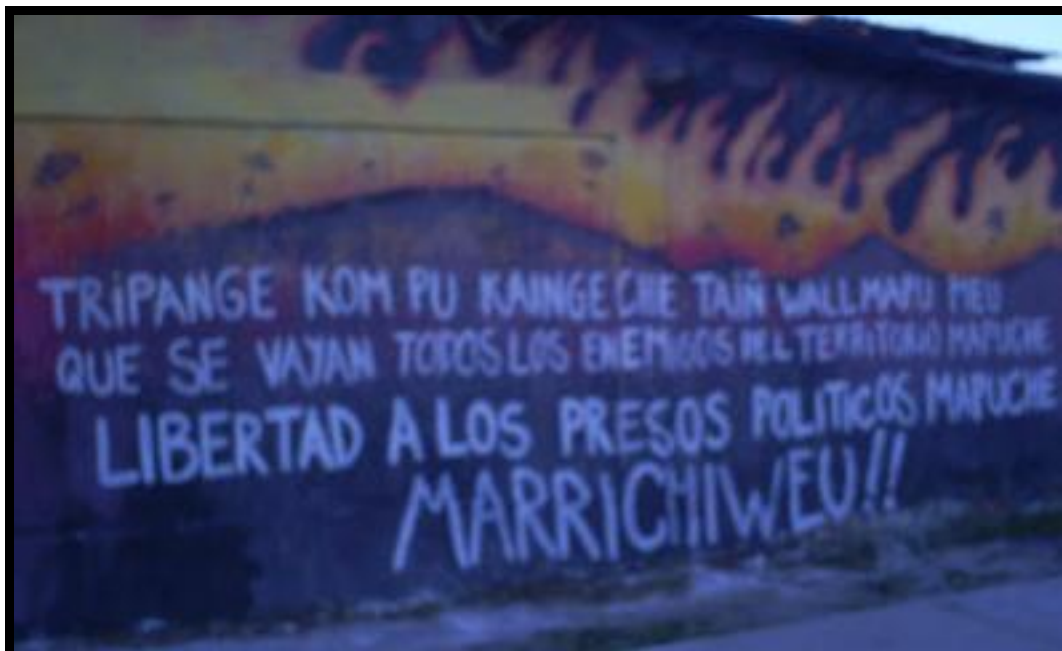 TRiPANGE KOM PU KAINGECHE TAIÑ WALLMAPU MEU
QUE SE VAYAN TODOS LOS ENEMIGOS DEL TERRITORIO MAPUCHE
LIBERTAD A LOS PRESOS POLITICOS MAPUCHE
MARRICHIWEU!!